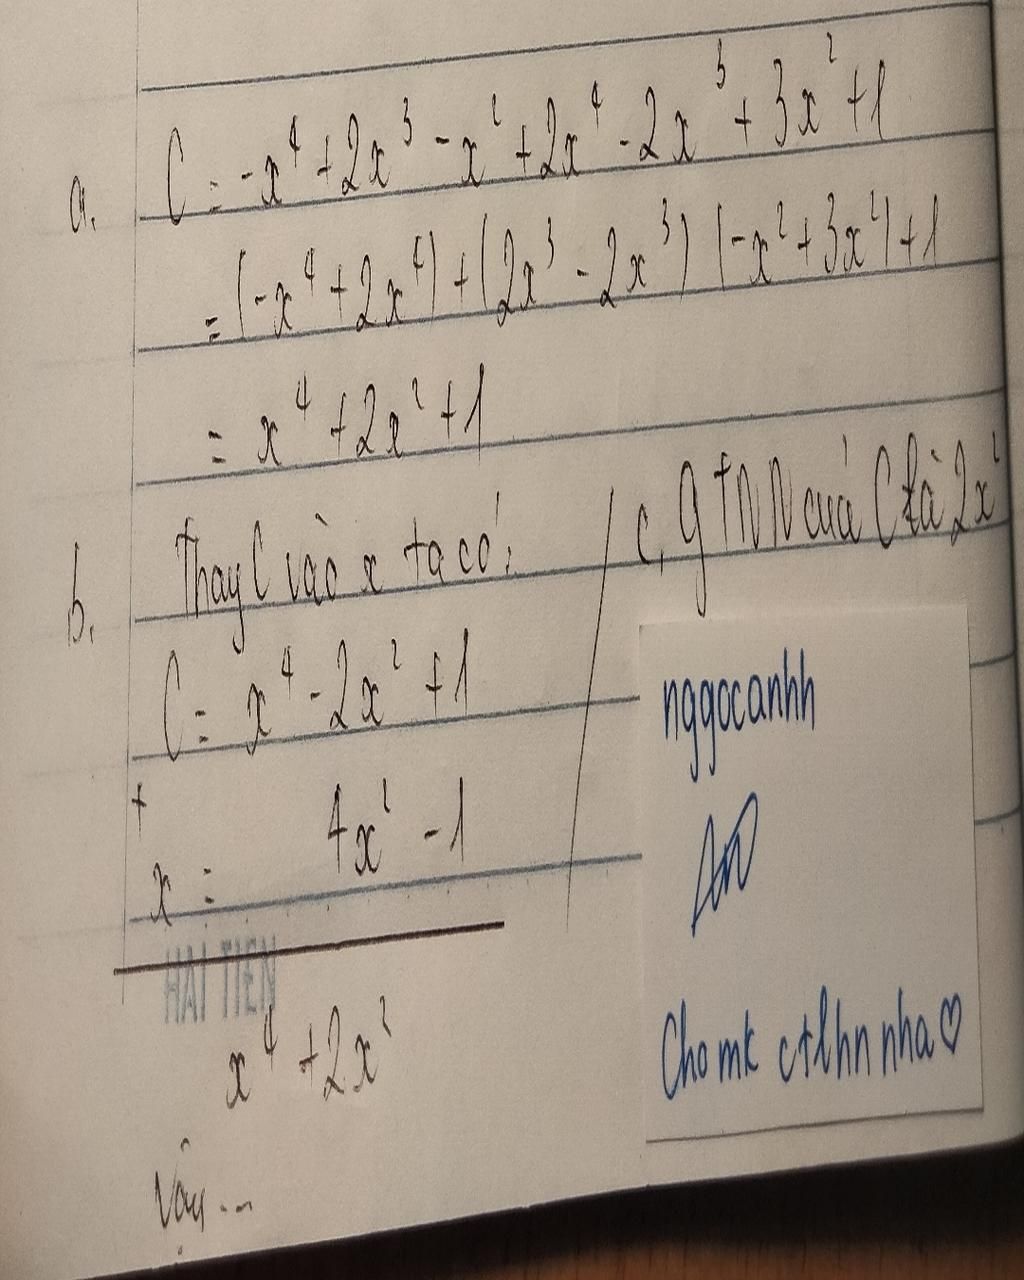 a. C = -x⁴ + 2x³ - x² + 2x⁴ - 2x³ + 3x² + 1
= (-x⁴ + 2x⁴) + (2x³ - 2x³) (-x² + 3x²) + 1
= x⁴ + 2x² + 1
b. Thay C vào x ta có:
C = x⁴ - 2x² + 1
+
x = 4x² - 1
HAI TIEN
x⁴ + 2x²
Vậy ...
c, GTNN của C là 2x²
nggocanhh
Cho mk ctlhn nha♡